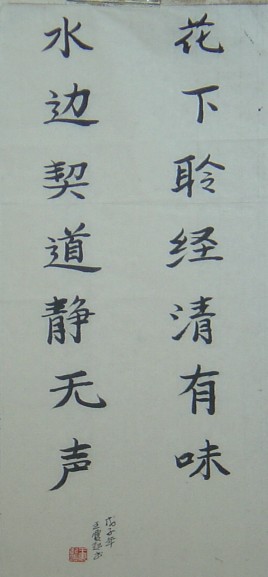 花下聆经清有味
水边契道静无声